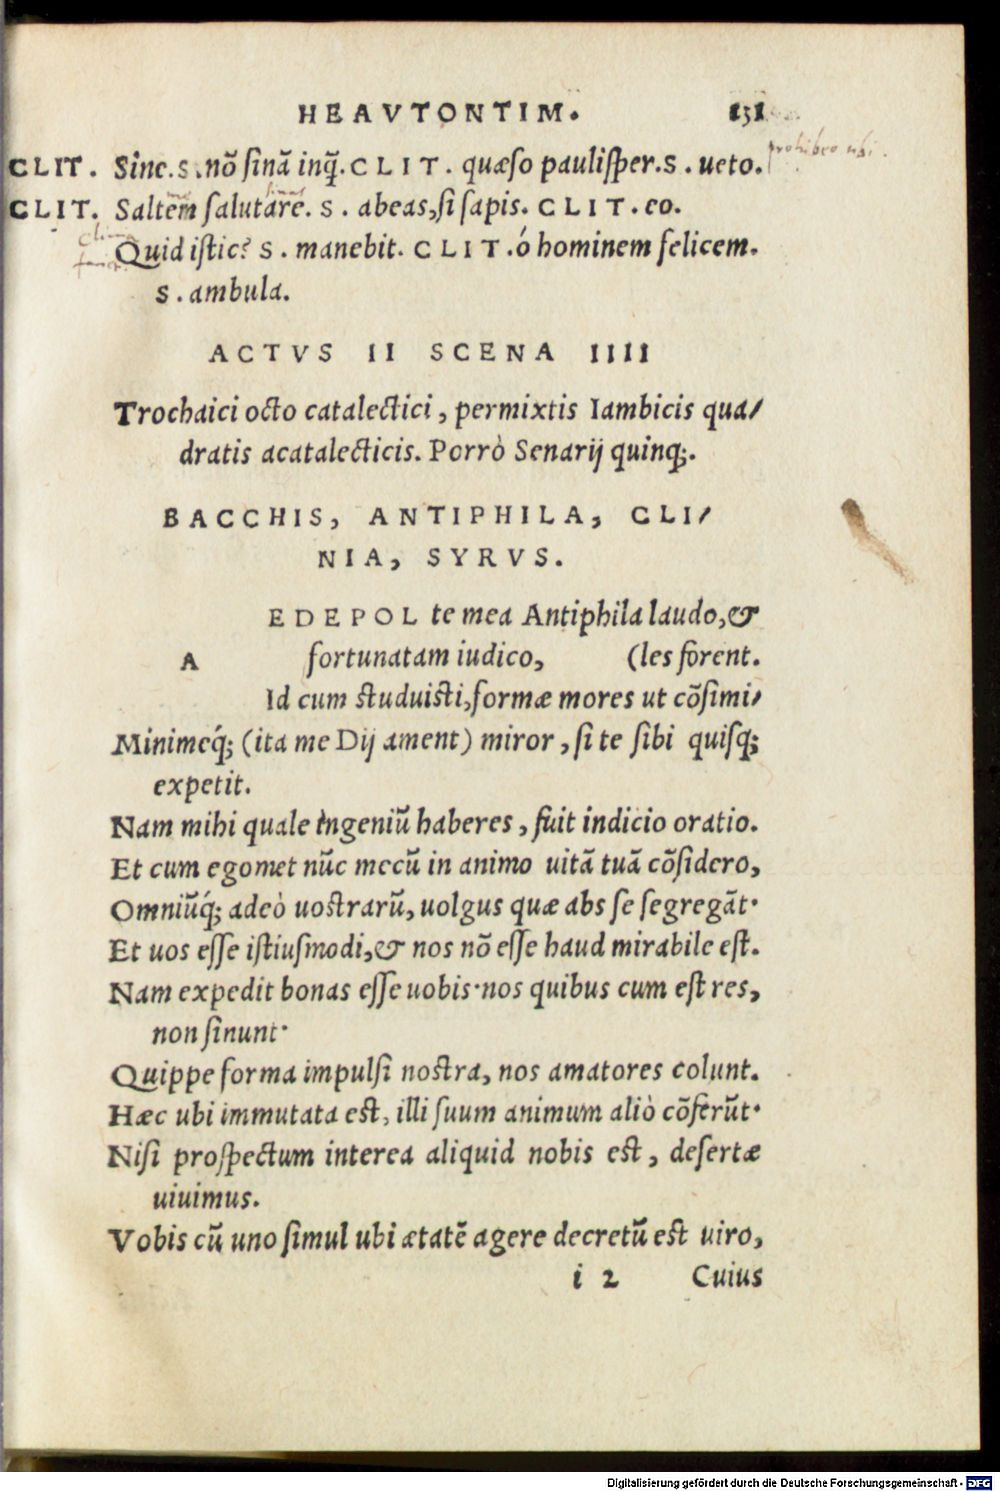 HEAVTONTIM. 131
CLIT. Sine. S. nõ sinã inq̃. CLIT. quæso paulisper. S. ueto.
CLIT. Saltẽm salutare. S. abeas, si sapis. CLIT. eo.
Quid istic? S. manebit. CLIT. ó hominem felicem.
S. ambula.
ACTVS II SCENA IIII
Trochaici octo catalectici, permixtis Iambicis qua/
dratis acatalecticis. Porrò Senarij quinq;.
BACCHIS, ANTIPHILA, CLI/
NIA, SYRVS.
EDEPOL te mea Antiphila laudo, &
A fortunatam iudico, (les forent.
Id cum studuisti, formæ mores ut cõsimi/
Minimeq́; (ita me Dij ament) miror, si te sibi quisq;
expetit.
Nam mihi quale ingeniũ haberes, fuit indicio oratio.
Et cum egomet nũc mecũ in animo uitã tuã cõsidero,
Omniũq́; adeò uostrarũ, uolgus quæ abs se segregãt·
Et uos esse istiusmodi, & nos nõ esse haud mirabile est.
Nam expedit bonas esse uobis· nos quibus cum est res,
non sinunt·
Quippe forma impulsi nostra, nos amatores colunt.
Hæc ubi immutata est, illi suum animum aliò cõferũt·
Nisi prospectum interea aliquid nobis est, desertæ
uiuimus.
Vobis cũ uno simul ubi ætatẽ agere decretũ est uiro,
i 2 Cuius
Digitalisierung gefördert durch die Deutsche Forschungsgemeinschaft - DFG